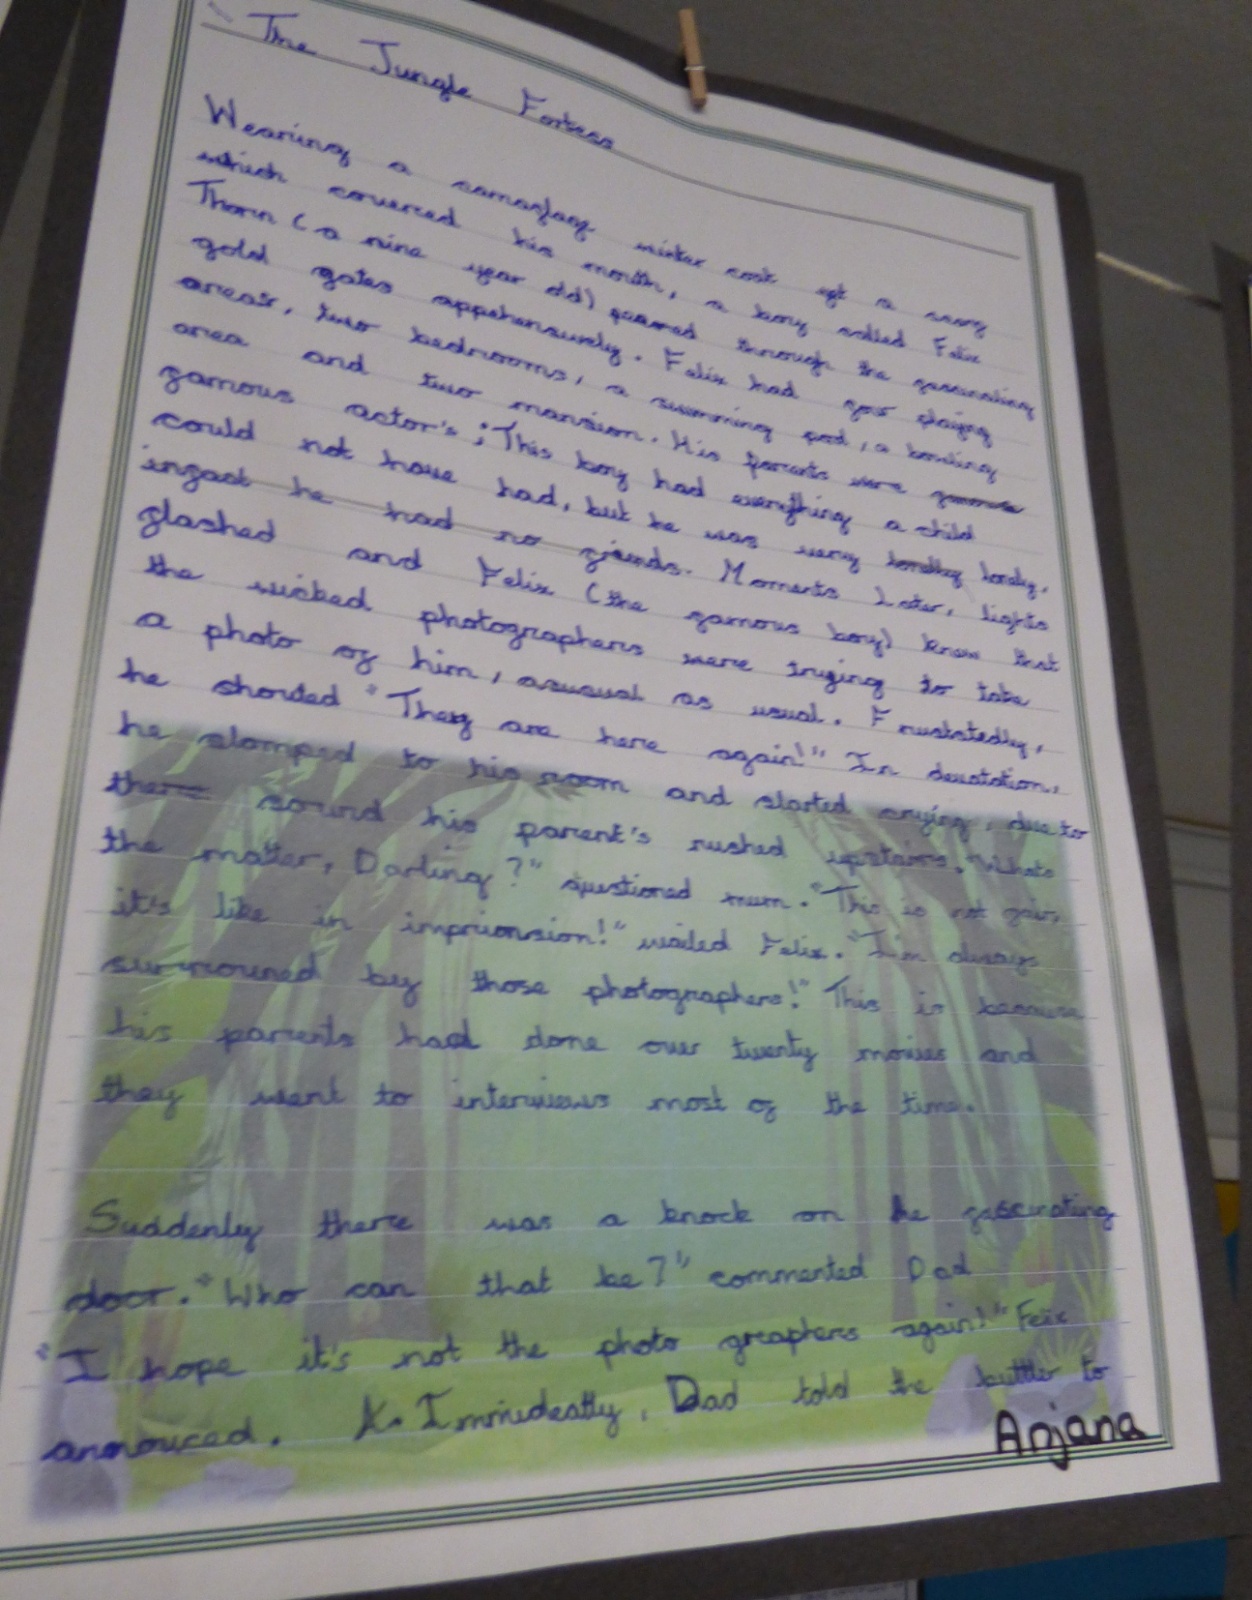 The Jungle Fortess
Wearing a camoaflage winter coat and a scarf
which covered his mouth, a boy called Felix
Thorn (a nine year old) peered through the fascinating
gold gates appehensively. Felix had
areas, two bedrooms, a swimming pool, a bowling
area and two mansion. His parents were
famous actor's; This boy had everything a child
could not have had, but he was very lonely,
infact he had no friends. Moments Later, lights
flashed and Felix (the famous boy) knew that
the wicked photographers were trying to take
a photo of him, asusual as usual. Frustatedly,
he shouted "They are here again!" In devatation,
he stomped to his room and started crying, due to
there sound his parent's rushed upstairs. "Whats
the matter, Darling?" questioned mum. "This is not fair,
it's like in imprionsion!" wailed Felix. "I'm always
surrouned by those photographers!" This is because
his parents had done over twenty movies and
they went to interviews most of the time.
Suddenly there was a knock on he fascinating
door. "Who can that be?" commented Dad
"I hope it's not the photo graphers again!" Felix
annouced. Immideatly, Dad told the buttler to
Anjana